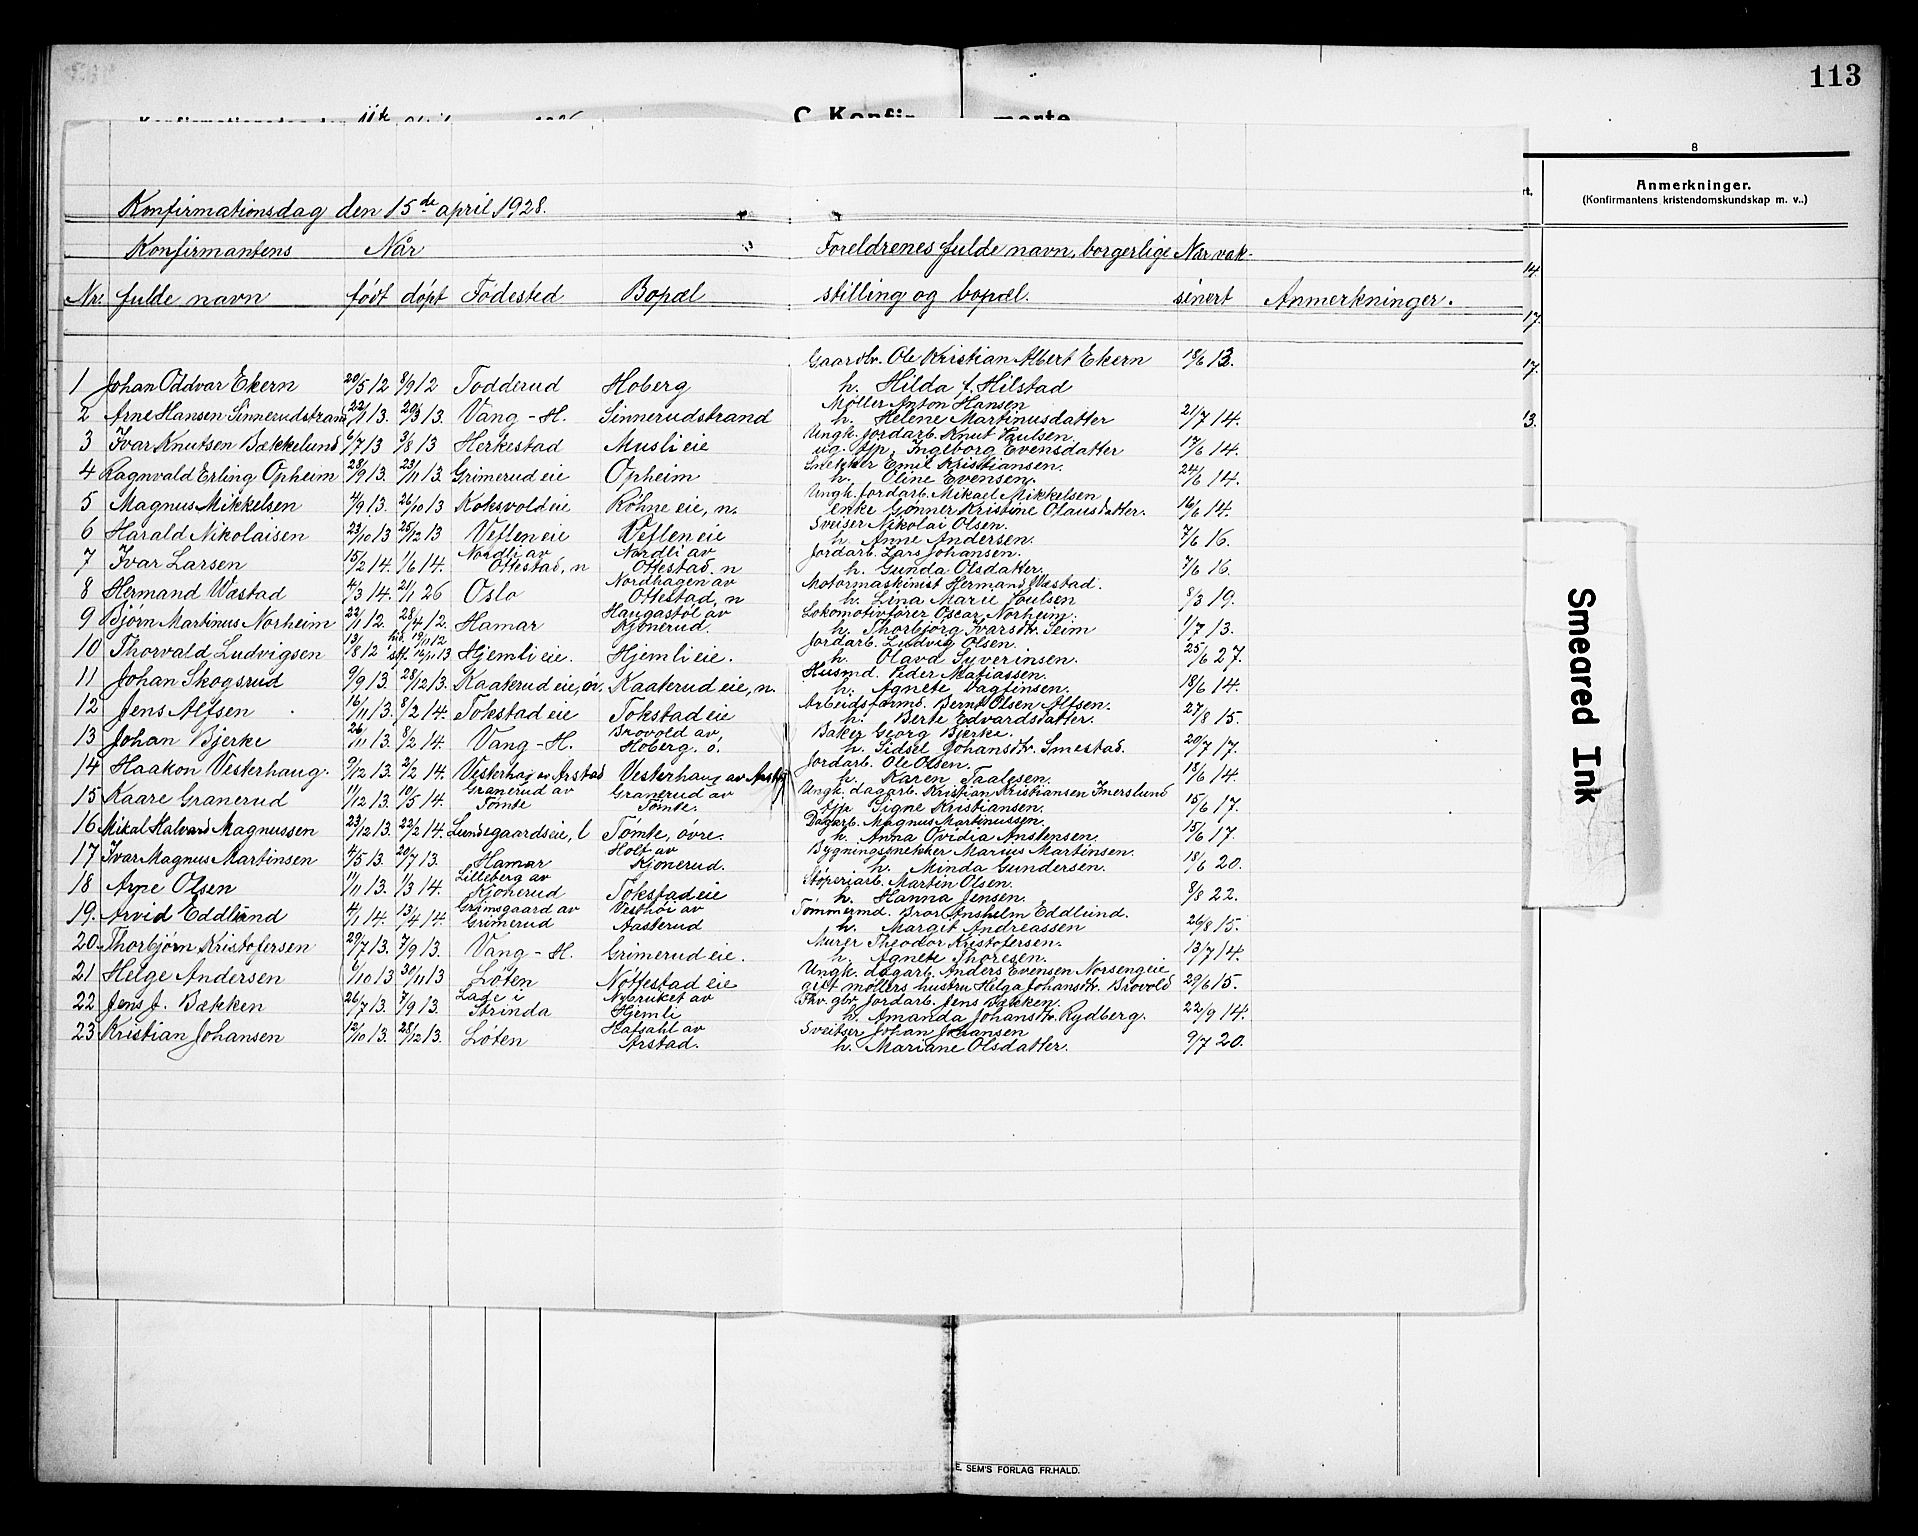 113
11te
C. Konfir merte
8
Anmerkninger.
(Konfirmantens kristendomskundskap m. v..)
Konfirmationsdag den 15de april 1928.
Konfirmantens Når Foreldrenes fulde navn, borgerlige Når vak-
Nr. fulde navn født døpt Fødested Bopæl stilling og bopæl. sinert Anmerkninger.
Gaardbr. Ole Kristian Albert Ekern 18/6 13.
1 Johan Oddvar Ekern 20/5 12 8/9 12 Todderud Hoberg h. Hilda f. Hilstad
Møller Anton Hansen
2 Arne Hansen Sinnerudstrand 22/1 13. 20/3 13. Vang-H. Sinnerudstrand h. Helene Martinusdatter 21/7 14.
Ungk. Jordarb. Knut Paulsen.
3 Ivar Knutsen Bækkelund 6/7 13 3/8 13 Herkestad Musli eie ug. tjp. Ingeborg Evensdatter 17/6 14.
Snekker Emil Kristiansen.
4 Ragnvald Erling Opheim 28/9 13. 23/11 13. Grimerud eie Opheim h. Oline Evensen. 24/6 14.
Ungk. Jordarb. Mikael Mikkelsen
5 Magnus Mikkelsen 4/9 13. 26/10 13 Koksvold eie Røhne eie, n. enke Gønner Kristine Olausdatter. 16/6 14.
Sveiser Nikolai Olsen.
6 Harald Nikolaisen 23/10 13 25/12 13 Veflen eie Veflen eie h. Anne Andersen. 7/6 16.
Nordli av Nordli av Jordarb. Lars Johansen.
7 Ivar Larsen 15/2 14. 1/6 14. Ottestad, n Ottestad. n h. Gunda Olsdatter. 7/6 16.
Nordhagen av Motormaskinist Hermand Wæstad.
8 Hermand Wæstad 4/3 14. 21/1 26 Oslo Ottestad, n h. Lina Marie Poulsen 8/3 19.
Haugastøl av Lokomotivfører Oscar Norheim.
9 Bjørn Martinus Norheim 22/11 12. 28/4 12. Hamar Kjonerud. h. Thorbjørg Ivarsdtr. Seim 1/7 13.
hd. 19/11 12 Jordarb. Ludvig Olsen.
10 Thorvald Ludvigsen 13/8 12 stf. 16/11 13 Hjemli eie. Hjemli eie. h. Olava Syverinsen. 25/6 27.
Husmd. Peder Matiassen.
11 Johan Skogsrud 9/9 13. 28/12 13. Kaaterud eie, ön. Kaaterud eie, n. h. Agnete Dagfinsen. 18/6 14.
Arbeidsformd. Bernt Olsen Alfsen.
12 Jens Alfsen 16/11 13. 8/2 14. Tokstad eie Tokstad eie h. Berte Edvardsdatter. 27/8 15.
Brovold av, Baker Georg Bjerke.
13 Johan Bjerke 26/11 13. 8/2 14. Vang-H. Hoberg. ö. h. Sidsel Johansdtr. Smestad. 20/7 17.
Jordarb. Ole Olsen.
14 Haakon Vesterhaug. 9/12 13. 2/2 14. Vesterhaug av Arstad Vesterhaug av Arstad h. Karen Taalesen. 18/6 14.
Granerud av Granerud av Ungk. dagarb. Kristian Kristiansen Imerslund
15 Kaare Granerud 11/12 13. 10/5 14. Tømte Tømte. tjp. Signe Kristiansen. 15/6 17.
Dagarb. Magnus Martinussen.
16 Mikal Halvard Magnussen 23/12 13. 22/2 14. Lundegaardseie, l Tømte, övre. h. Anna Ovidia Anstensen. 15/6 17.
Holt av Bygningssnekker Marius Martinsen.
17 Ivar Magnus Martinsen 4/5 13. 20/7 13. Hamar Kjonerud. h. Minda Gundersen. 18/6 20.
Lilleberg av Støperiarb. Martin Olsen.
18 Arne Olsen 11/11 13. 1/3 14. Kjonerud Tokstad eie h. Hanna Jensen. 8/8 22.
Grimsgaard av Vesthøi av Tømmermd. Bror Anshelm Eddlund.
19. Arvid Eddlund 4/1 14. 13/4 14. Grimerud Aasterud h. Margit Andreassen 26/8 15.
Murer Theodor Kristofersen.
20 Thorbjørn Kristofersen 29/7 13. 7/9 13. Vang-H. Grimerud eie. h. Agnete Thoresen. 13/7 14.
Ungk. dagarb. Anders Evensen Norsengeie
21 Helge Andersen 6/10 13 30/11 13 Løten Nøttestad eie gift møllers hustru Helga Johansdtr. Brovold 29/6 15.
Lade i Nybruket av Fhv. gbr. Jordarb. Jens Bækken.
22 Jens J. Bækken 26/7 13. 7/9 13. Strinda Hjemli h. Amanda Johansdtr. Rydberg. 22/9 14.
Hafsahl av Sveitser Johan Johansen
23 Kristian Johansen 12/10 13. 28/12 13. Løten Arstad. h. Mariane Olsdatter. 9/7 20.
14.
17.
17.
13.
Smeared Ink
E. SEM'S FORLAG FR.HALD.